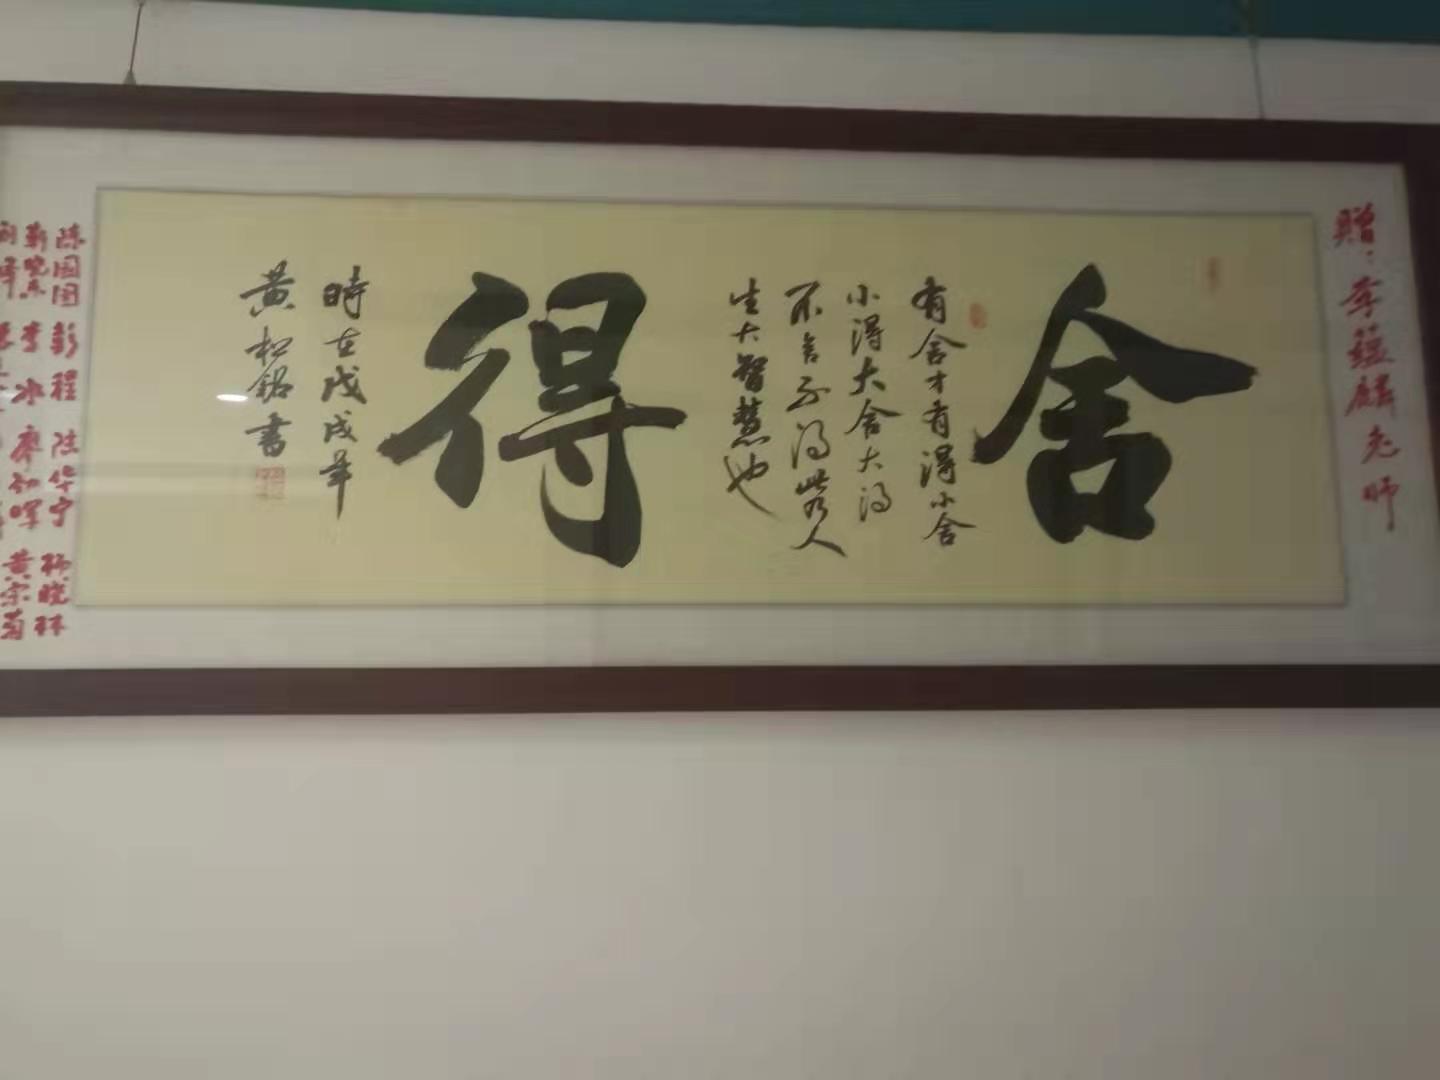 贈：李蕴麟老师
舍
有舍才有得小舍
小得大舍大得
不舍不得此乃人
生大智慧也
得
時在戊戌年
黄松銘書
陈园园 彭程 陆华宁 杨晓林
靳晓东 李冰 廖初晖 黄宗菊